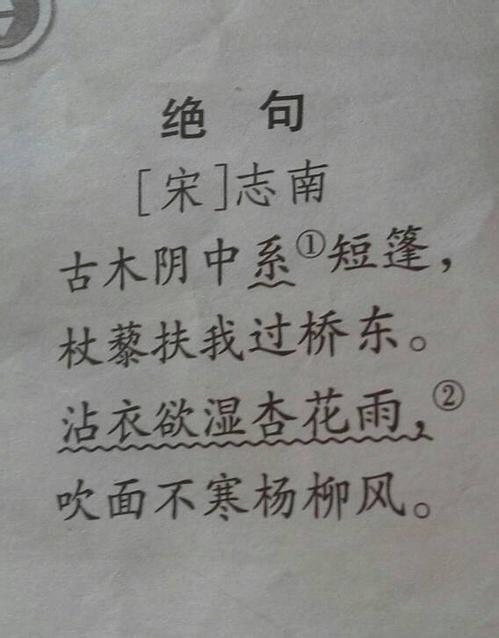 绝 句
[宋]志南
古木阴中系①短篷，
杖藜扶我过桥东。
沾衣欲湿杏花雨，②
吹面不寒杨柳风。